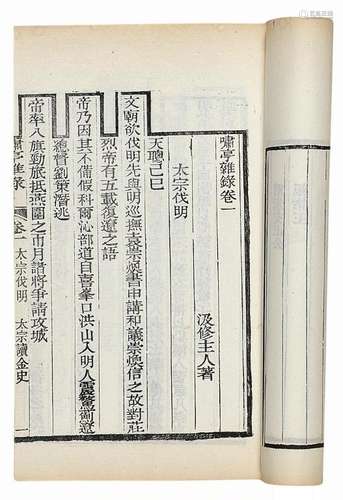 嘯亭雜錄卷一
汲修主人著
太宗伐明
天聰己巳
文朝欲伐明先與明巡撫袁崇煥書申講和議崇煥信之故對莊
烈帝有五載復遼之語
帝乃因其不備假科爾沁部道自喜峯口洪山入明人震驚薊遼
總督劉策潛逃
帝率八旗勁旅抵燕圍之帀月諸將爭請攻城
嘯亭雜录 卷一 太宗伐明 太宗讀金史 一